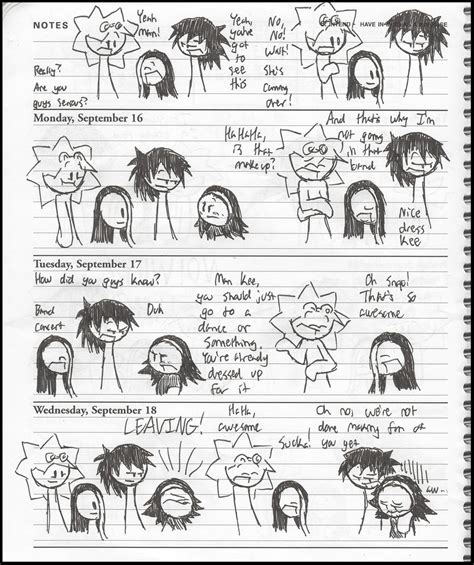 NOTES
HAVE IN
Really?
Are you
guys serious?
Yeah
man!
Yeah,
you've
got
to
see
this
No,
No!
Wait!
She's
Coming
over!
Monday, September 16
HaHaHa,
is that
makeup?
And that's why I'm
not going
in that
band
Nice
dress
Kee
Tuesday, September 17
How did you guys know?
Band
concert
Duh
Man Kee,
you should just
go to a
dance or
something.
You're already
dressed up
for it
Oh snap!
That's so
awesome
Wednesday, September 18
LEAVING!
HaHa,
awesome
Sucka!
Oh no, we're not
done making fun of
you yet
aw--